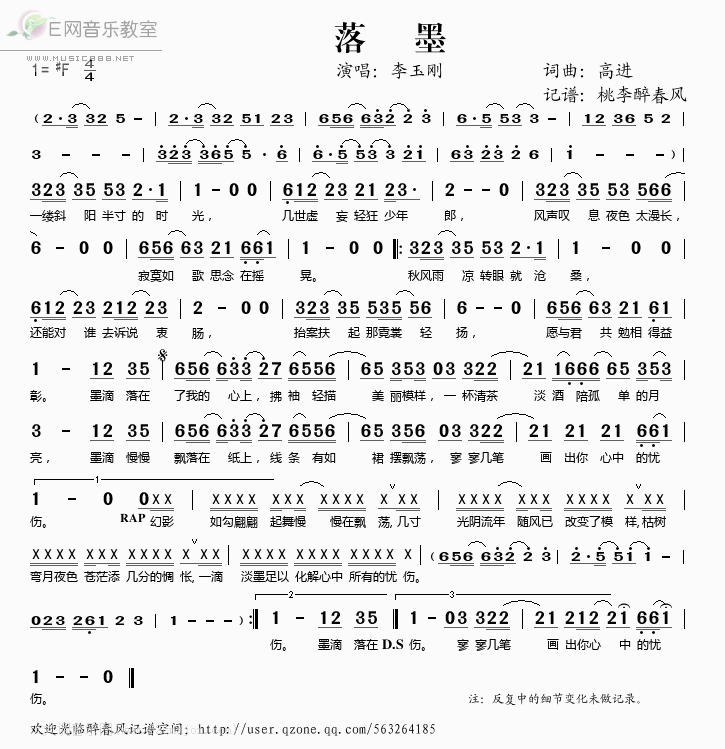 E网音乐教室
WWW.MUSIC888.NET
落 墨
1= #F 4/4
演唱：李玉刚
词曲：高进
记谱：桃李醉春风
( 2·3 32 5 - | 2·3 32 51 23 | 656 632 2 3 | 6·5 53 3 - | 12 36 5 2
3 - - - | 323 365 5·6 | 6·5 53 3 21 | 63 23 2 6 | 1 - - - )|
323 35 53 2·1 | 1 - 0 0 | 612 23 21 23· | 2 - - 0 | 323 35 53 566
一缕斜 阳 半寸 的 时 光， 几世虚 妄 轻狂 少年 郎， 风声叹 息 夜色 太漫长，
6 - 0 0 | 656 63 21 661 | 1 - 0 0 |: 323 35 53 2·1 | 1 - 0 0 |
寂寞如 歌 思念 在摇 晃。 秋风雨 凉 转眼 就 沧 桑，
612 23 212 23 | 2 - 0 0 | 323 35 535 56 | 1 - 0 0 | 656 63 21 61 |
还能对 谁 去诉说 衷 肠， 抬案扶 起 那霓裳 轻 扬， 愿与君 共 勉相 得益
1 - 12 35 | 656 633 27 6556 | 65 353 03 322 | 21 1666 65 353 |
彰。 墨滴 落在 了我的 心上，拂 袖 轻描 美 丽模样，一 杯清茶 淡 酒 陪孤 单的月
3 - 12 35 | 656 633 27 6556 | 65 356 03 322 | 21 21 21 661 |
亮， 墨滴 慢慢 飘落在 纸上，线 条 有如 裙 摆飘荡，寥 寥几笔 画 出你 心中 的忧
1
1 - 0 0XX | XXXX XXXX XXXX X,XX | XXXX XXXX XXXX X,XX |
伤。 RAP 幻影 如勾翩翩 起舞慢 慢在飘 荡,几寸 光阴流年 随风已 改变了模 样,枯树
XXXX XXXX XXXX X,XX | XXXX XXXX XXXX X | (656 632 2 3 | 2·5 51 1 -
弯月夜色 苍茫添 几分的惆 怅,一滴 淡墨足以 化解心中 所有的忧 伤。
2
3
023 261 2 3 | 1 - - - ) :| 1 - 12 35 | 1 - 03 322 | 21 212 21 661 |
伤。 墨滴 落在 D.S 伤。 寥 寥几笔 画 出你心 中 的忧
1 - - 0
伤。
注：反复中的细节变化未做记录。
欢迎光临醉春风记谱空间：http://user.qzone.qq.com/563264185